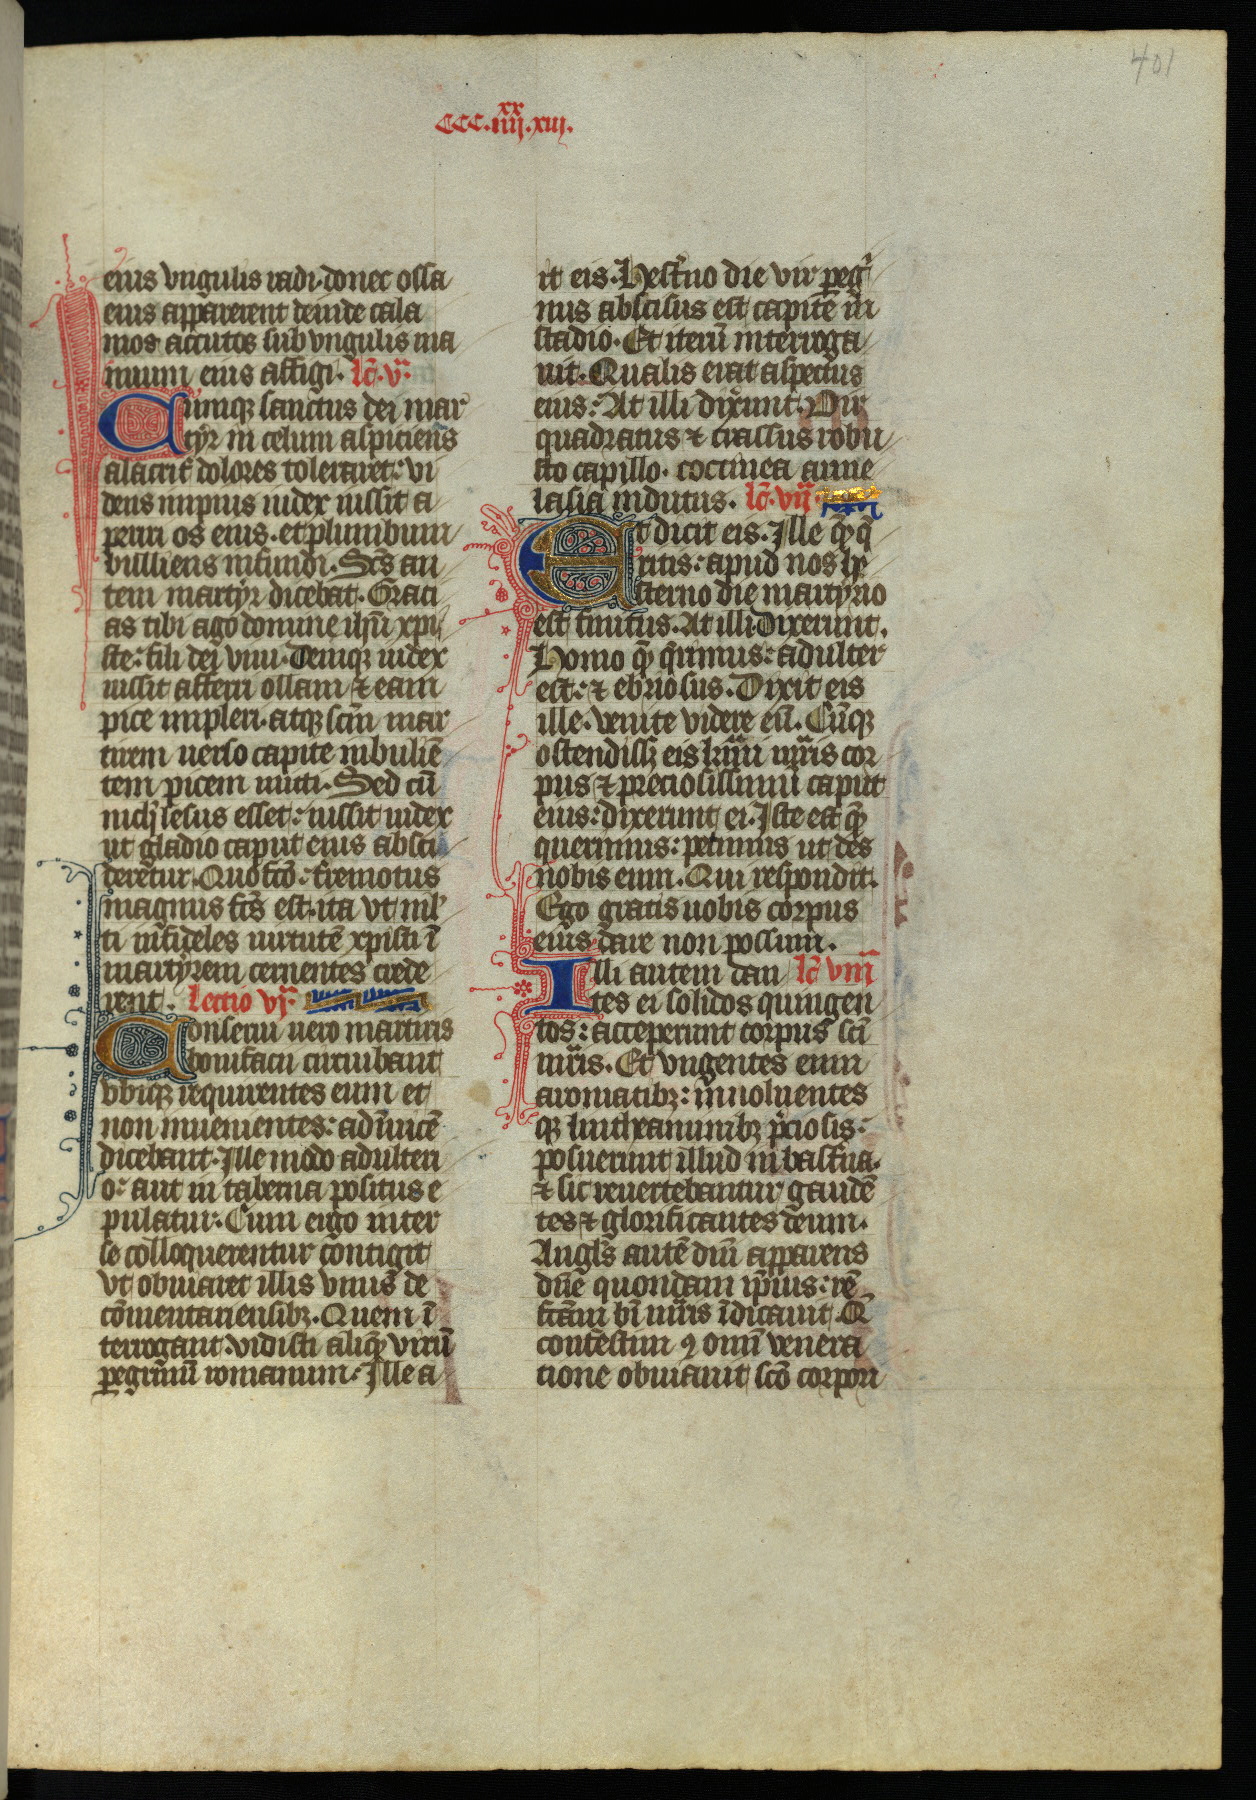 401
CCC.iiii^xx.xiii.
eius vngulis radi. donec ossa
eius apparerent deinde cala
mos accutos sub vngulis ma
nuum eius affigi. lc̄. v.ᵃ
Cumq; sanctus dei mar
tyr in celum aspiciens
alacrit̄ dolores toleraret: vi
dens impius iudex iussit a
periri os eius. et plumbum
bulliens infundi. Sc̄s au
tem martyr dicebat. Graci
as tibi ago domine ih̄u xpi
ste: fili dei viui. Deniq; iudex
iussit afferri ollam ⁊ eam
pice impleri. atq; sc̄m mar
tirem uerso capite in buliē
tem picem mitti. Sed cū
nich̄ lesus esset: iussit iudex
ut gladio caput eius absci
deretur. Quo fc̄o: t̄remotus
magnus fc̄s est. ita vt ml̄
ti infideles uirtutē xpisti ī
martyrem cernentes crede
rent. Lectio vj.ᵃ
Conserui uero martiris
bonifacii circuibant
vbiq; requirentes eum et
non inuenientes: ad īuicē
dicebant. Ille modo adulteri
o: aut in taberna positus e
pulatur. Cum ergo inter
se colloquerentur contigit
vt obuiaret illis vnus de
cōmentariensib;. Quem ī
terrogant. vidisti aliq̄ virū
peregrinū romanum. Ille a
it eis. Hest̄no die vir peg̍
nus abscisus est capite in
stadio. Et iterū interroga
uit. Qualis erat aspectus
eius: At illi dixerunt. Vir
quadratus ⁊ crassus robu
sto capillo. coccinea anne
lasia indutus. lc̄. vii.ᵃ
Et dicit eis. Ille q̄ q̄
ritis: apud nos he
sterno die martyrio
est finitus. At illi dixerunt.
Homo q̄ q̄rimus: adulter
est: ⁊ ebriosus. Dixit eis
ille. venite videre eū. Cūq;
ostendiss; eis
pus ⁊ preciosissimū caput
eius: dixerunt ei. Iste est q̄
querimus: petimus ut des
nobis eum. Qui respondit.
Ego gratis uobis corpus
eius dare non possum.
Illi autem dan lc̄ viii.ᵃ
tes ei solidos quingen
tos: acceperunt corpus sc̄i
mr̄is. Et vngentes eum
aromatib;: inuoluentes
q; lintheaminib; p̄ciosis:
posuerunt illud in bast̄na.
⁊ sic reuertebantur gaudē
tes ⁊ glorificantes deum.
Angl̄s autē dn̄i apparens
dn̄e quondam ip̄ius: rē
fc̄am bī mr̄is īdicauit. Q̄
confestim ꝯ omī venera
tione obuiauit sc̄o corpori